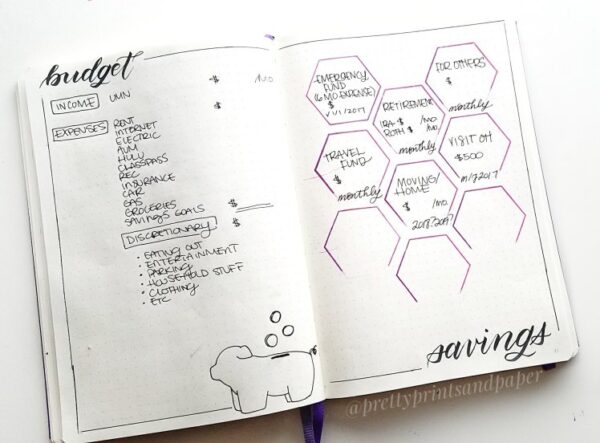 budget
INCOME UMN $ /MO
$
EXPENSES RENT
INTERNET
ELECTRIC
AVM
HULU
CLASSPASS
REC
INSURANCE
CAR
GAS
GROCERIES
SAVINGS GOALS $
DISCRETIONARY $
• EATING OUT
• ENTERTAINMENT
• PARKING
• HOUSEHOLD STUFF
• CLOTHING
• ETC
EMERGENCY
FUND
(6 MO. EXPENSE)
$
1/1/2017
FOR OTHERS
$
monthly
RETIREMENT
IRA $ /MO
ROTH $ /MO.
monthly
TRAVEL
FUND
$
monthly
VISIT OH
$500
MOVING/
HOME
$ /MO.
savings
@prettyprintsandpaper